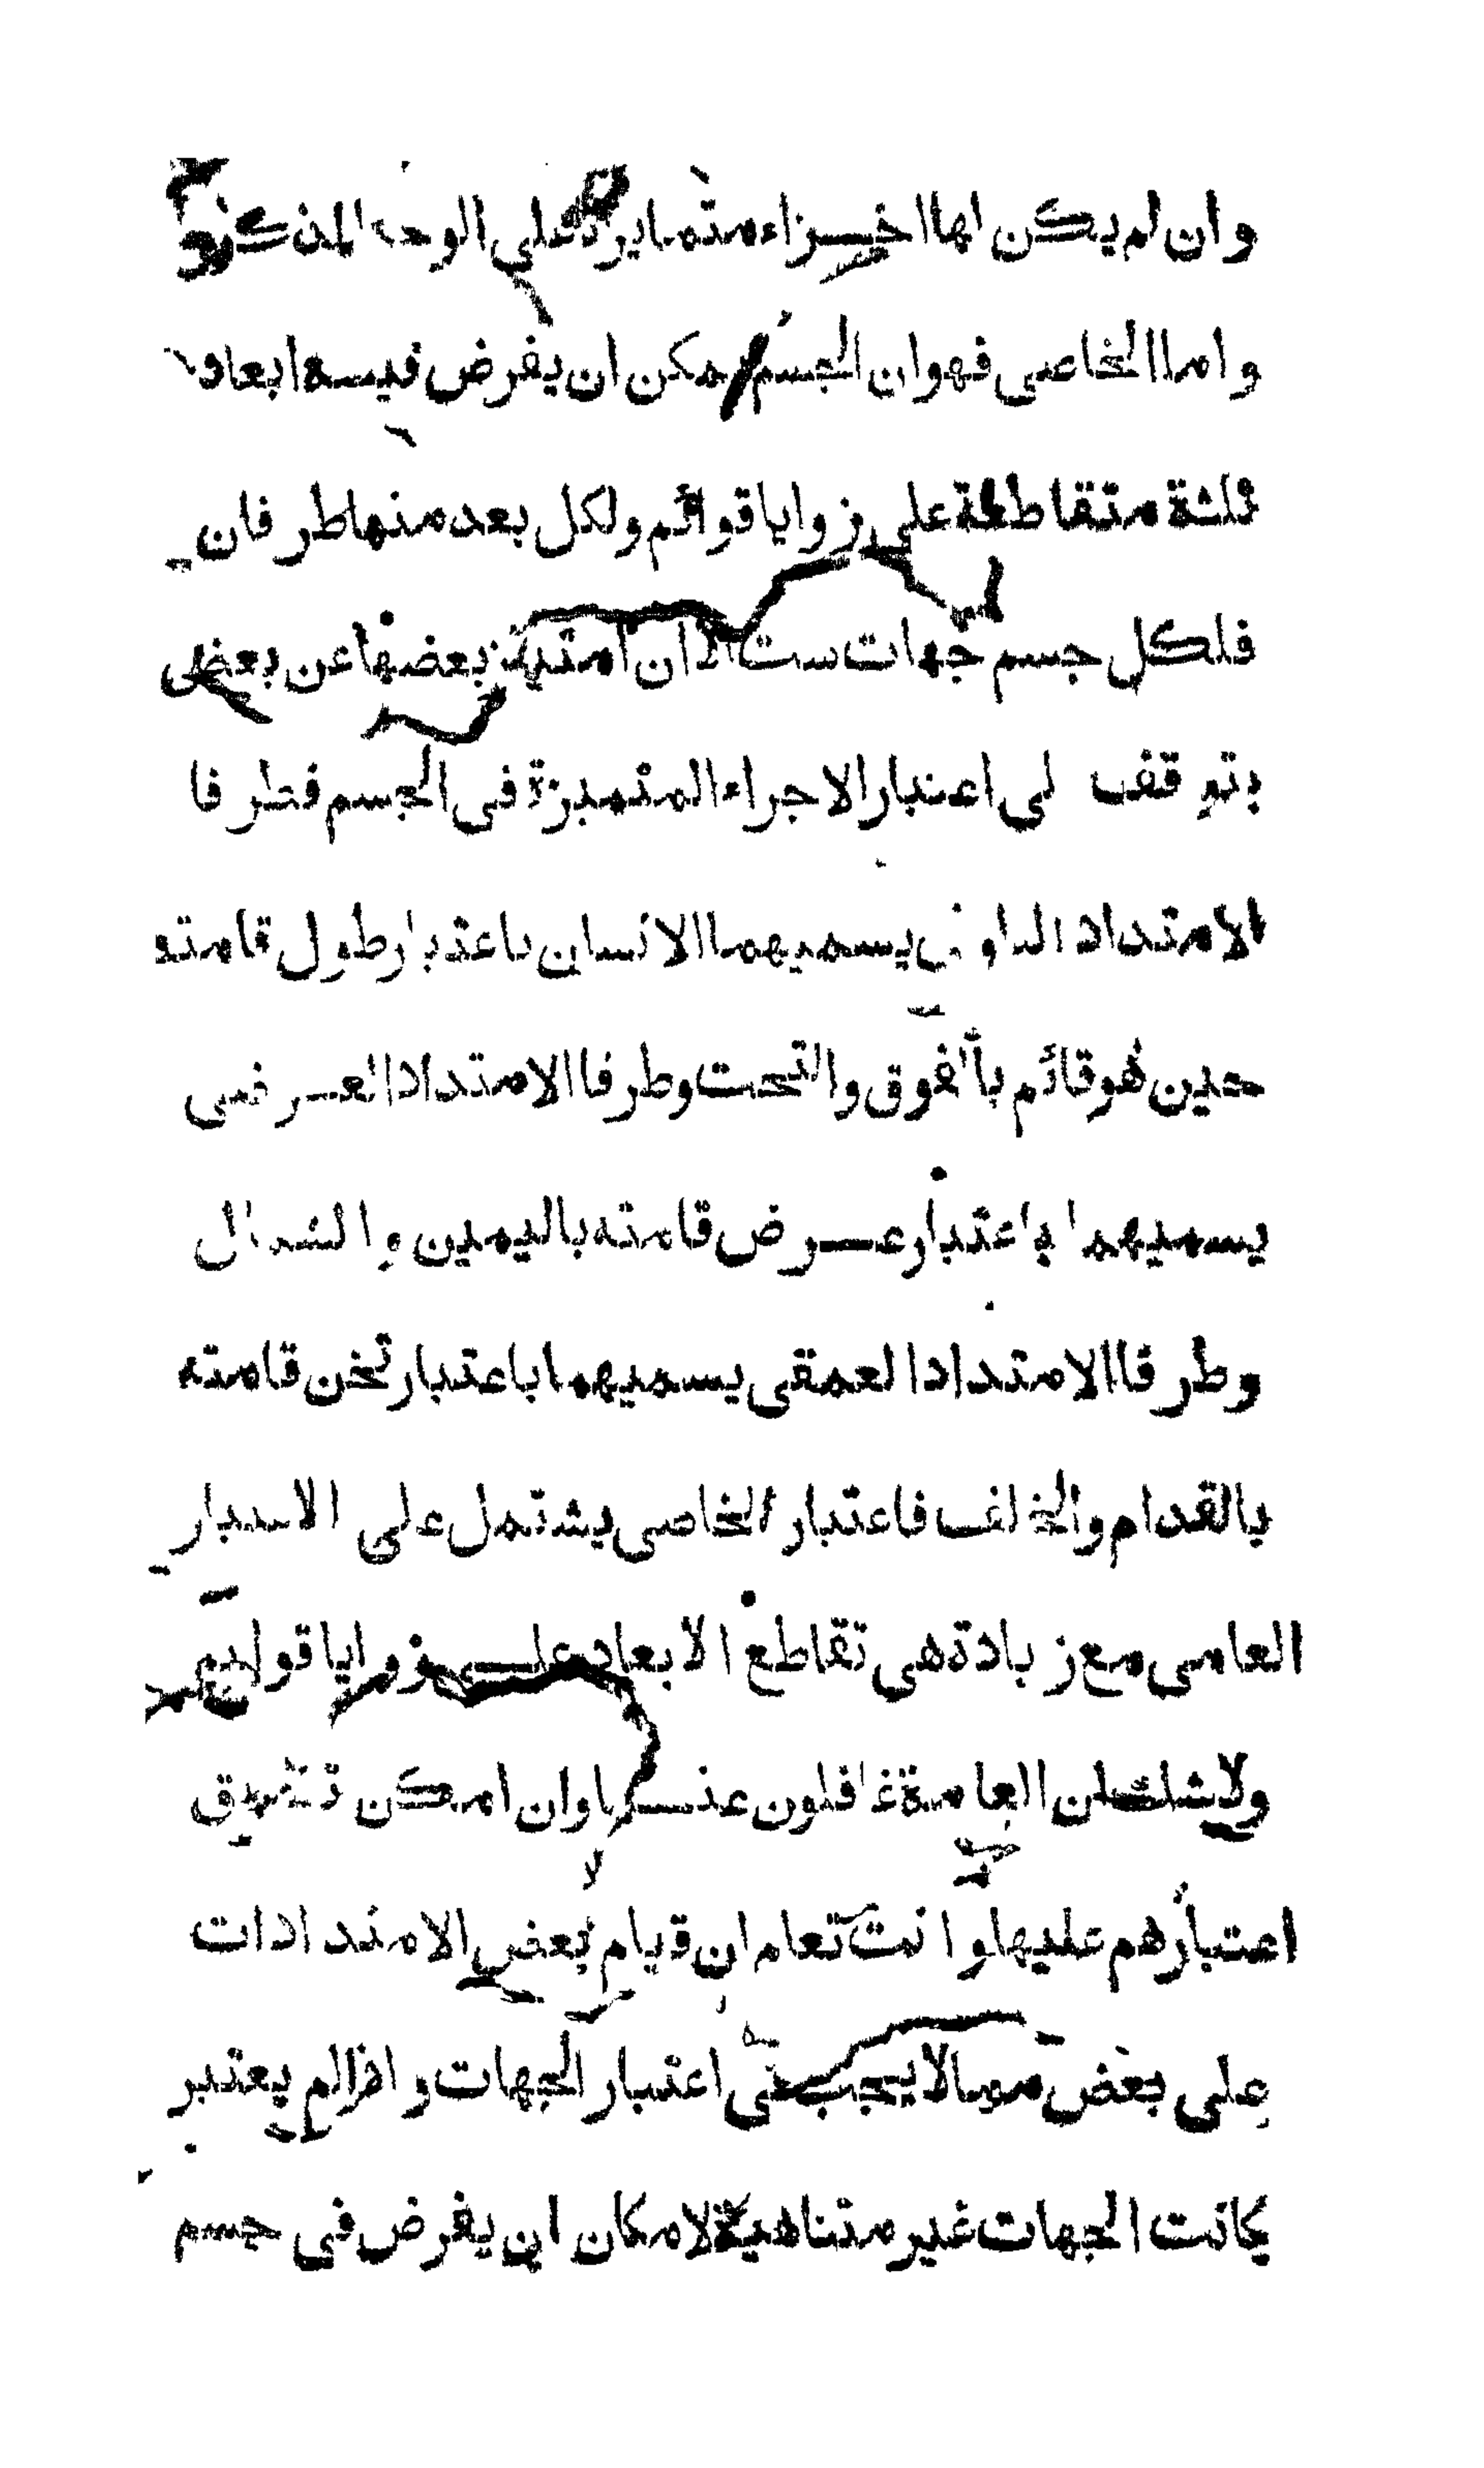 وان لم يكن لها اجزاء متمايزة على الوجه المذكور
واما الخاصى فهو ان الجسم يمكن ان يفرض فيه ابعاد
ثلثة متقاطعة على زوايا قوائم ولكل بعد منها طرفان
فلكل جسم جهات ست الا ان امتياز بعضها عن بعض
يتوقف على اعتبار الاجزاء المتميزة فى الجسم فطرفا
الامتداد الطولى يسميهما الانسان باعتبار طول قامته
حين هو قائم بالفوق والتحت وطرفا الامتداد العرضى
يسميهما باعتبار عرض قامته باليمين والشمال
وطرفا الامتداد العمقى يسميهما باعتبار ثخن قامته
بالقدام والخلف فاعتبار الخاصى يشتمل على الاعتبار
العامى مع زيادة هى تقاطع الابعاد على زوايا قوايم
ولا شك ان العامة غافلون عنها وان امكن تطبيق
اعتبارهم عليها وانت تعلم ان قيام بعض الامتدادات
على بعض مما لا يجب فى اعتبار الجهات واذا لم يعتبر
كانت الجهات غير متناهية لامكان ان يفرض فى جسم